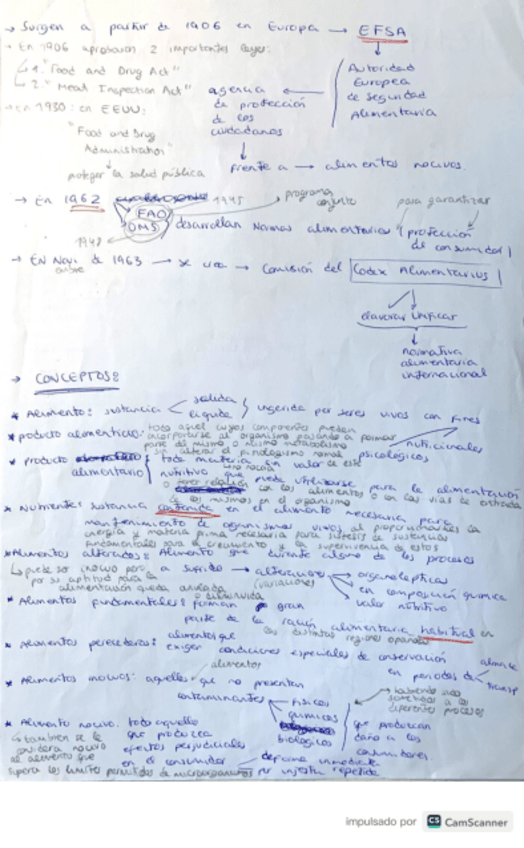 → Surgen a partir de 1906 en Europa → EFSA
→ En 1906 aprobaron 2 importantes leyes:
1. "Food and Drug Act"
2. "Meat Inspection Act"
Autoridad
Europea
de Seguridad
Alimentaria
agencia
de protección
de los
ciudadanos
→ En 1930: en EEUU:
"Food and Drug
Administration"
proteger la salud pública
frente a → alimentos nocivos.
→ En 1962
FAO
OMS
1945
1948
programa
conjunto
desarrollan Normas alimentarias
para garantizar
protección
de consumidor
→ EN Nov. de 1963 → se crea → Comisión del Codex Alimentarius
elavorar Unificar
normativa
alimentaria
internacional
→ CONCEPTOS:
* Alimento: sustancia
solida
liquida
ingerida por seres vivos con fines
nutricionales
psicológicos
* producto alimenticio: todo aquel cuyos componentes pueden
incorporarse al organismo pasando a formar
parte del mismo o
sin alterar el normal
* producto
alimentario
toda materia sin valor
nutritivo que puede utilizarse para la alimentación
o tener relación con los alimentos o con las vias de entrada
en el organismo
* Nutrientes: sustancia contenida en el alimento necesaria para
mantenimiento de organismos vivos, al proporcionarles la
energía y materia prima necesaria para síntesis de sustancias
fundamentales para el crecimiento y la supervivencia de estos
* Alimentos alterados: Alimento que durante alguno de los procesos
puede ser inocuo pero
a sufrido → alteraciones
(variaciones)
organolepticas
en composición química
valor nutritivo
por su aptitud para la
alimentación queda anulada
o disminuida
* Alimentos fundamentales: forman gran
parte de la ración alimentaria habitual en
las distintas regiones
* Alimentos perecederos: alimentos que
exigen condiciones especiales de conservación
en periodos de
* Alimentos inocuos: aquellos alimentos que no presentan
contaminantes
físicos
químicos
biológicos
habiendo sido
sometidos a los
diferentes procesos
que produzcan
daño a los
consumidores
* Alimento nocivo: todo aquello
que produzca
efectos perjudiciales
en el consumidor
de forma inmediata
por injesta repetida
también se le
considera nocivo
al alimento que
supera los limites permitidos de microorganismos
impulsado por CS CamScanner